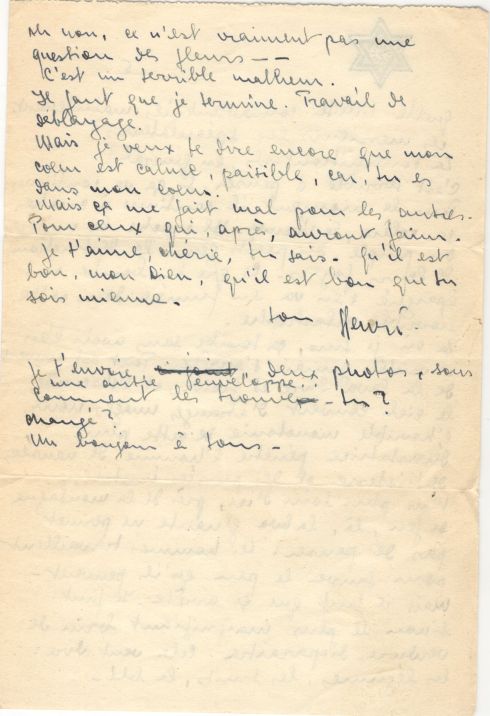 Ah non, ce n'est vraiment pas une
question des fleurs — —
C'est un terrible malheur.
Il faut que je termine. Travail de
déblayage.
Mais je veux te dire encore que mon
coeur est calme, paisible, car, tu es
dans mon coeur.
Mais ça me fait mal pour les autres.
Pour ceux qui, après, auront faim.
Je t'aime, chérie, tu sais. Qu'il est
bon, mon Dieu, qu'il est bon que tu
sois mienne.
ton Henri.
Je t'envoie deux photos, sous
une autre enveloppe.
Comment les trouve-tu?
changé?
Un bonjour à tous -